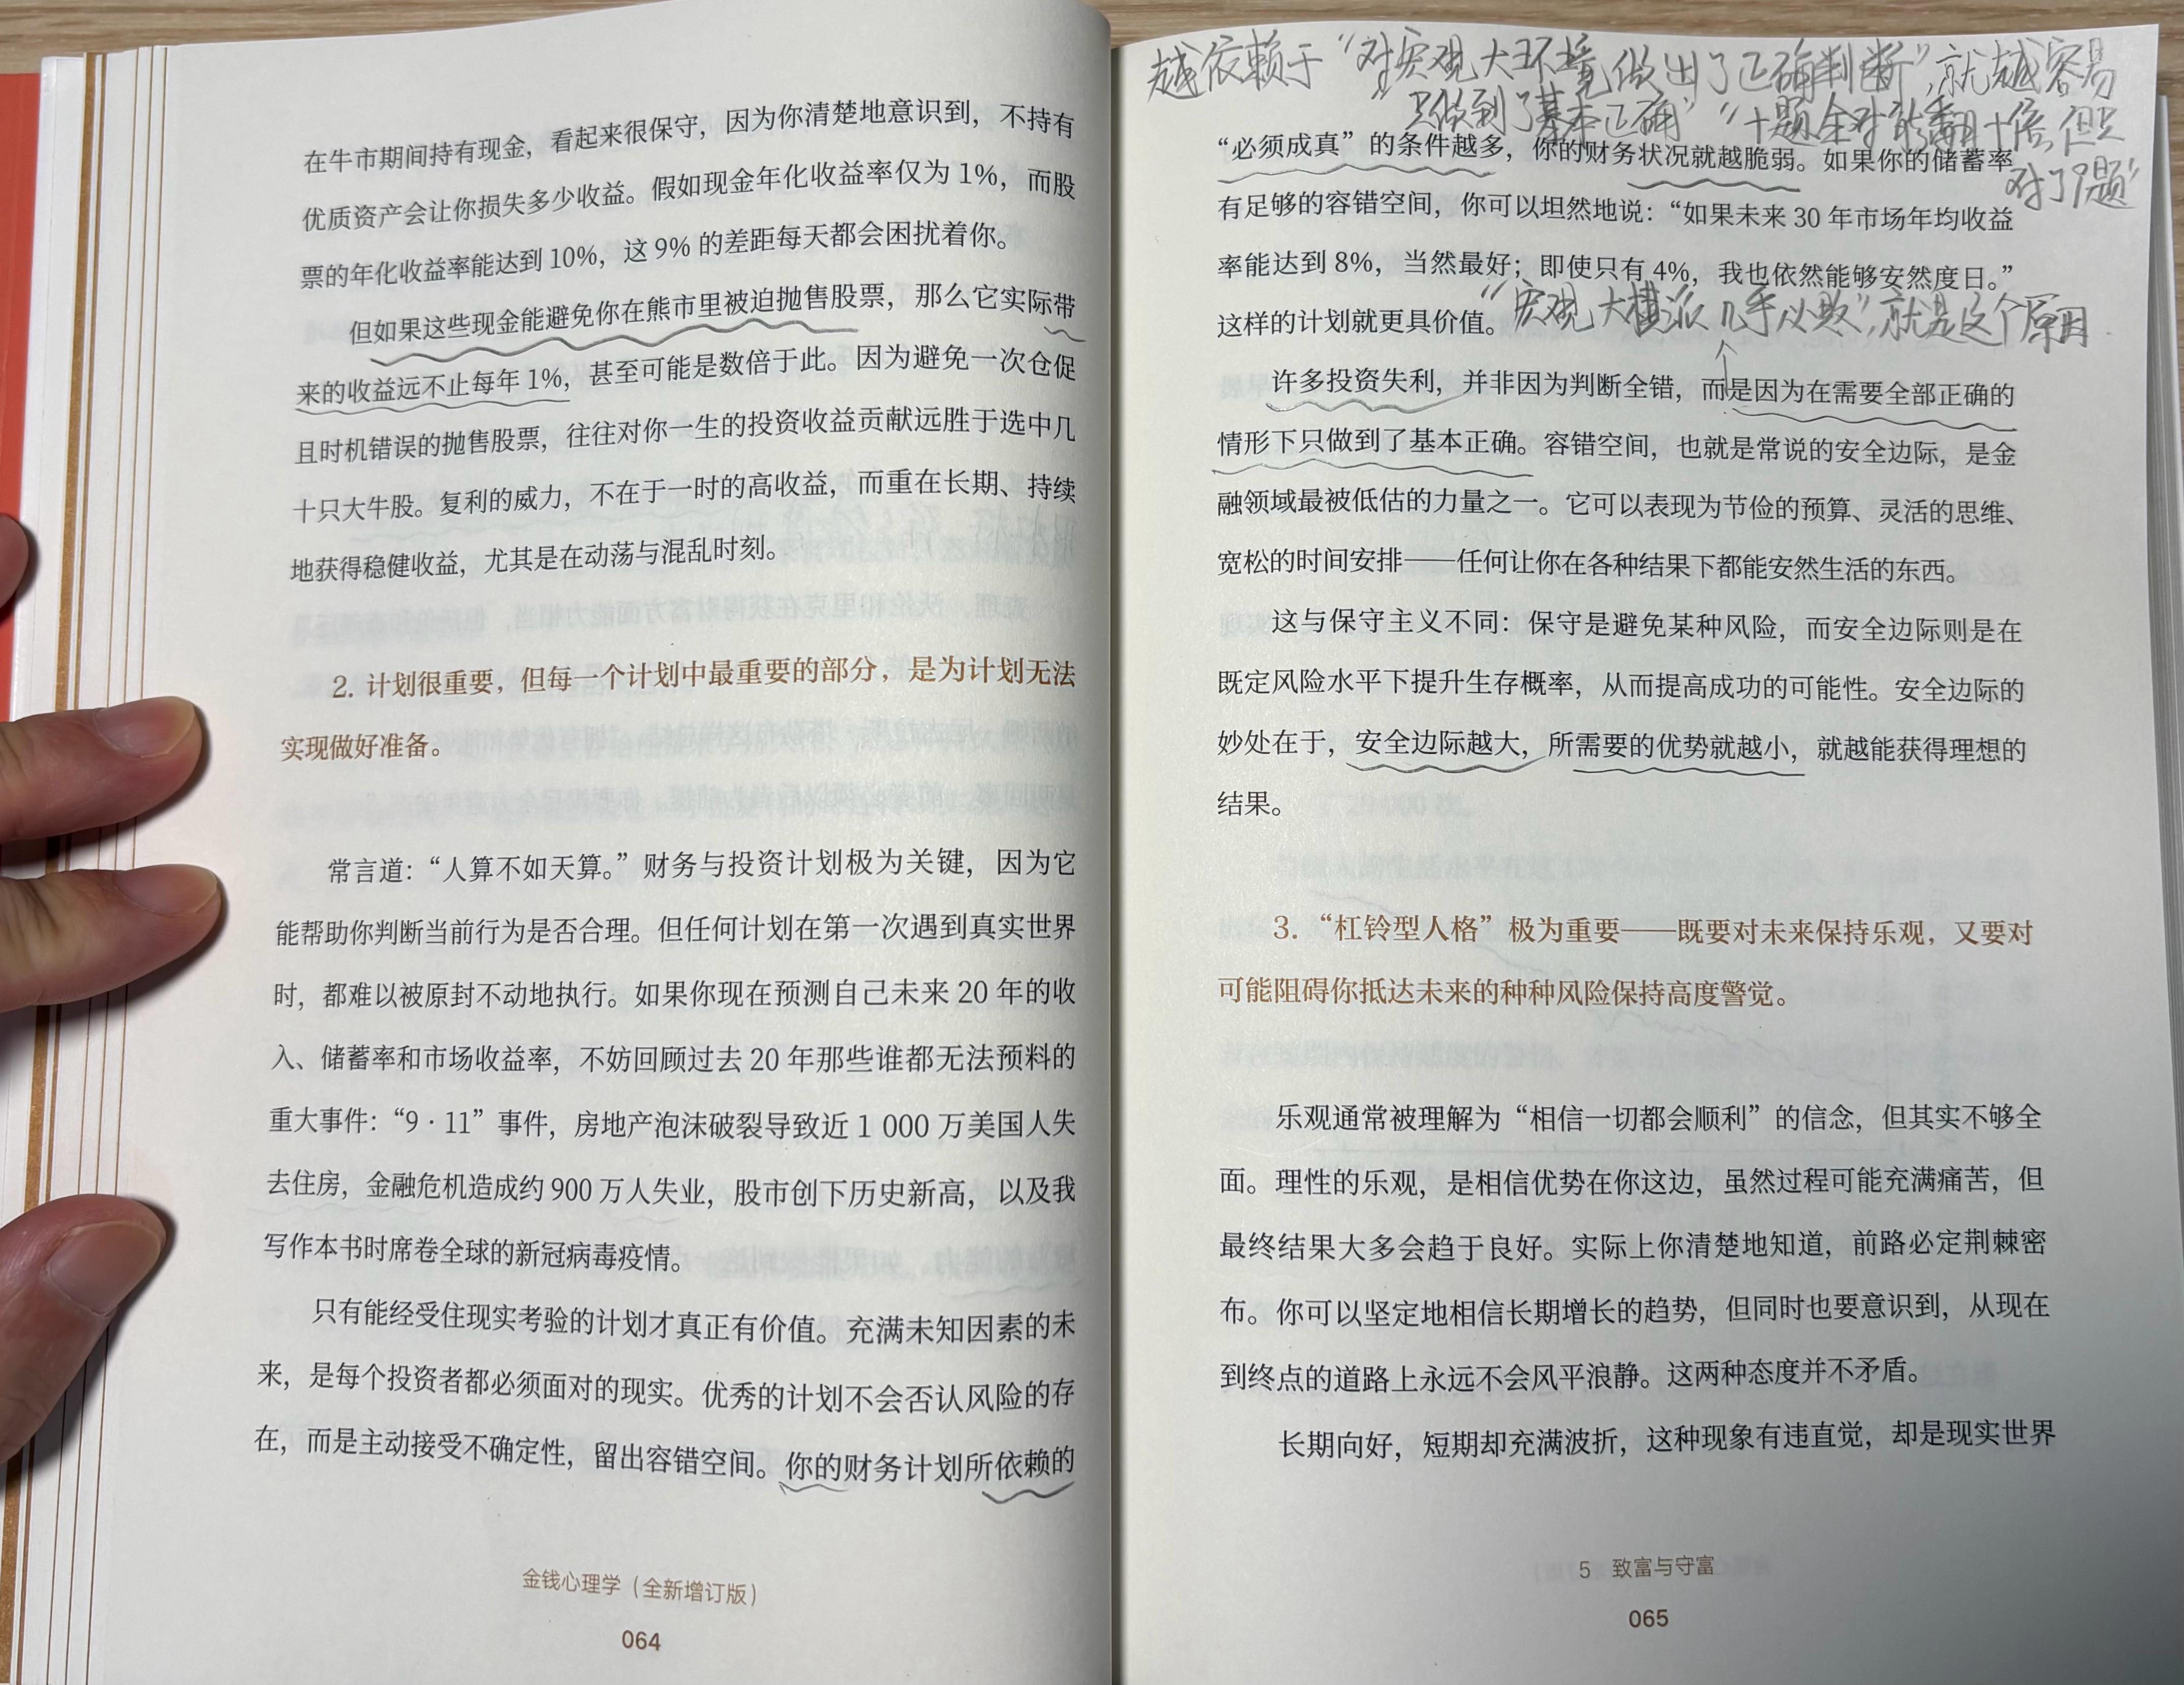 在牛市期间持有现金，看起来很保守，因为你清楚地意识到，不持有
优质资产会让你损失多少收益。假如现金年化收益率仅为 1%，而股
票的年化收益率能达到 10%，这 9% 的差距每天都会困扰着你。
但如果这些现金能避免你在熊市里被迫抛售股票，那么它实际带
来的收益远不止每年 1%，甚至可能是数倍于此。因为避免一次仓促
且时机错误的抛售股票，往往对你一生的投资收益贡献远胜于选中几
十只大牛股。复利的威力，不在于一时的高收益，而重在长期、持续
地获得稳健收益，尤其是在动荡与混乱时刻。
2. 计划很重要，但每一个计划中最重要的部分，是为计划无法
实现做好准备。
常言道：“人算不如天算。”财务与投资计划极为关键，因为它
能帮助你判断当前行为是否合理。但任何计划在第一次遇到真实世界
时，都难以被原封不动地执行。如果你现在预测自己未来 20 年的收
入、储蓄率和市场收益率，不妨回顾过去 20 年那些谁都无法预料的
重大事件：“9 · 11”事件，房地产泡沫破裂导致近 1 000 万美国人失
去住房，金融危机造成约 900 万人失业，股市创下历史新高，以及我
写作本书时席卷全球的新冠病毒疫情。
只有能经受住现实考验的计划才真正有价值。充满未知因素的未
来，是每个投资者都必须面对的现实。优秀的计划不会否认风险的存
在，而是主动接受不确定性，留出容错空间。你的财务计划所依赖的
金钱心理学（全新增订版）
064
越依赖于“对宏观大环境做出了正确判断”，就越容易
“只做到了基本正确”“十题全对能翻十倍，但只
对了9题”
“必须成真”的条件越多，你的财务状况就越脆弱。如果你的储蓄率
有足够的容错空间，你可以坦然地说：“如果未来 30 年市场年均收益
率能达到 8%，当然最好；即使只有 4%，我也依然能够安然度日。”
这样的计划就更具价值。
“宏观大模派几乎必败”，就是这个原因.
许多投资失利，并非因为判断全错，而是因为在需要全部正确的
情形下只做到了基本正确。容错空间，也就是常说的安全边际，是金
融领域最被低估的力量之一。它可以表现为节俭的预算、灵活的思维、
宽松的时间安排——任何让你在各种结果下都能安然生活的东西。
这与保守主义不同：保守是避免某种风险，而安全边际则是在
既定风险水平下提升生存概率，从而提高成功的可能性。安全边际的
妙处在于，安全边际越大，所需要的优势就越小，就越能获得理想的
结果。
3. “杠铃型人格”极为重要——既要对未来保持乐观，又要对
可能阻碍你抵达未来的种种风险保持高度警觉。
乐观通常被理解为“相信一切都会顺利”的信念，但其实不够全
面。理性的乐观，是相信优势在你这边，虽然过程可能充满痛苦，但
最终结果大多会趋于良好。实际上你清楚地知道，前路必定荆棘密
布。你可以坚定地相信长期增长的趋势，但同时也要意识到，从现在
到终点的道路上永远不会风平浪静。这两种态度并不矛盾。
长期向好，短期却充满波折，这种现象有违直觉，却是现实世界
5 致富与守富
065